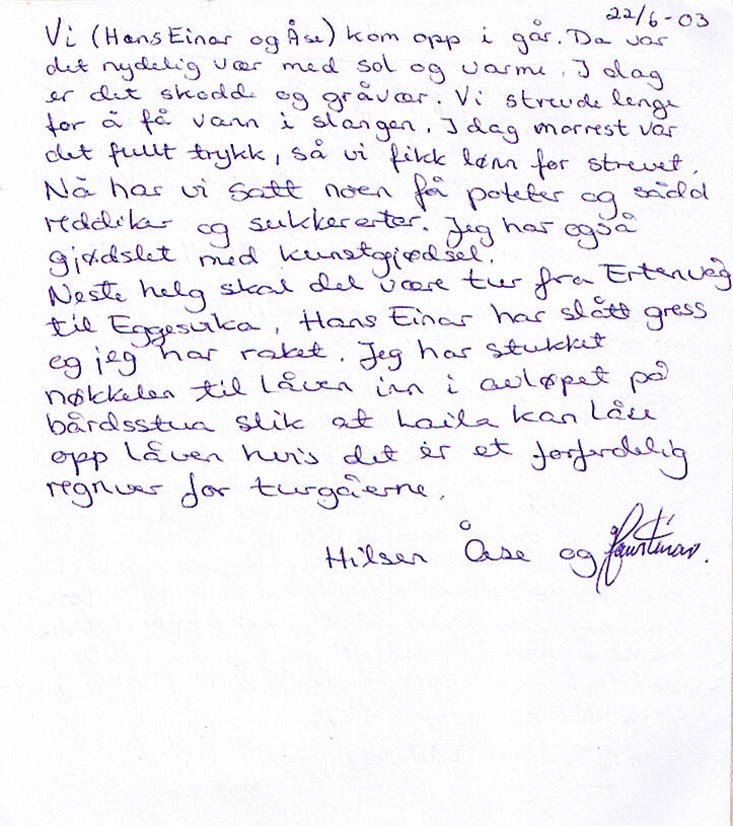 22/6-03
Vi (Hans Einar og Åse) kom opp i går. Da var
det nydelig vær med sol og varme. I dag
er det skodde og gråvær. Vi strevde lenge
for å få vann i slangen. I dag morrest var
det fullt trykk, så vi fikk lønn for strevet.
Nå har vi satt noen få poteter og sådd
reddiker og sukkererter. Jeg har også
gjødslet med kunstgjødsel.
Neste helg skal det være tur fra Ertenvåg
til Eggesvika. Hans Einar har slått gress
og jeg har raket. Jeg har stukket
nøkkelen til låven inn i avløpet på
bårdsstua slik at Laila kan låse
opp låven hvis det er et forferdelig
regnvær for turgåerne.
Hilsen Åse og Hans Einar.